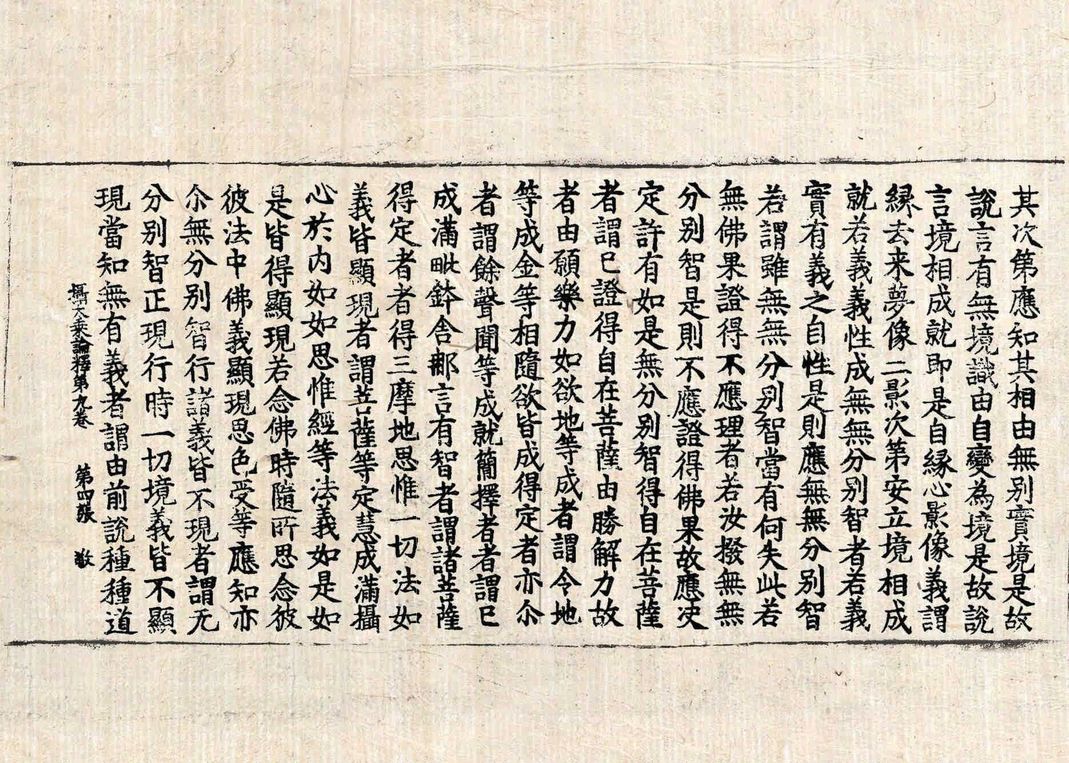 其次第應知其相由無別實境是故
說言有無境識由自變為境是故說
言境相成就即是自縁心影像義謂
縁去来夢像二影次第安立境相成
就若義義性成無無分別智者若義
實有義之自性是則應無無分別智
若謂雖無無分別智當有何失此若
無佛果證得不應理者若汝撥無無
分別智是則不應證得佛果故應决
定許有如是無分別智得自在菩薩
者謂已證得自在菩薩由勝解力故
者由願樂力如欲地等成者謂令地
等成金等相隨欲皆成得定者亦尒
者謂餘聲聞等成就簡擇者者謂已
成滿毗鉢舍那言有智者謂諸菩薩
得定者者得三摩地思惟一切法如
義皆顯現者謂菩薩等定慧成滿攝
心於内如如思惟經等法義如是如
是皆得顯現若念佛時隨所思念彼
彼法中佛義顯現思色受等應知亦
尒無分別智行諸義皆不現者謂无
分別智正現行時一切境義皆不顯
現當知無有義者謂由前說種種道
攝大乘論釋第九卷 第四張 敬